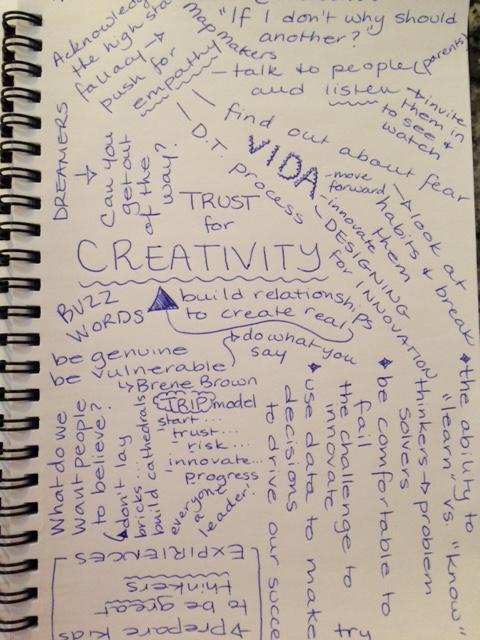 "If I don't why should
another?"
Map makers
Acknowledge
the high sta
fallacy →
push for
empathy
- talk to people (parents)
and listen → invite
them in
to see &
watch
find out about fear
D.T. process
VIDA
- move
forward
- innovate
- DESIGNING
for INNOVATION
→ look at
habits & break
them
DREAMERS
→
Can you
get out
of the
way?
TRUST
for
CREATIVITY
BUZZ
WORDS
build relationships
to create real
do what you
say
be genuine
be vulnerable
→ Brene Brown
TRIP model
start...
trust...
risk...
innovate...
progress
everyone a
leader!
What do we
want people
to believe?
→ don't lay
bricks...
build cathedrals
the ability to
"learn" vs. "know"
thinkers → problem
solvers
be comfortable to
fail
the challenge to try
innovate
use data to make
decisions
to drive our succe
EXPIRIENCES
→ prepare kids
to be great
thinkers